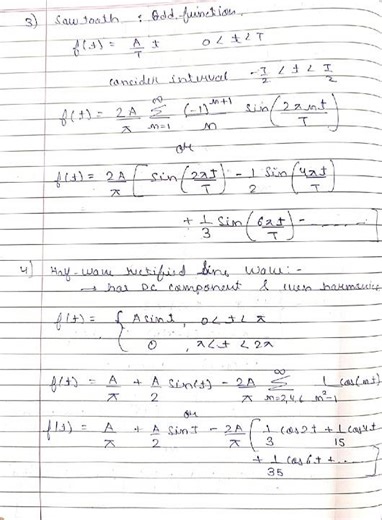 3) Sawtooth : Odd function.
f(t) = A/T t    0 < t < T
consider interval -T/2 < t < T/2
f(t) = 2A/π ∞Σn=1 (-1)^(n+1)/n sin(2πnt/T)
or
f(t) = 2A/π [ sin(2πt/T) - 1/2 sin(4πt/T)
+ 1/3 sin(6πt/T) - ------- ]
4) wave rectified sine wave :-
→ has DC component & even harmonics
f(t) = { A sin t , 0 < t < π
0 , π < t < 2π
f(t) = A/π + A/2 sin(t) - 2A/π ∞Σn=2,4,6 1/n²-1 cos(nt)
or
f(t) = A/π + A/2 sin t - 2A/π [ 1/3 cos 2t + 1/15 cos 4t
+ 1/35 cos 6t + ...